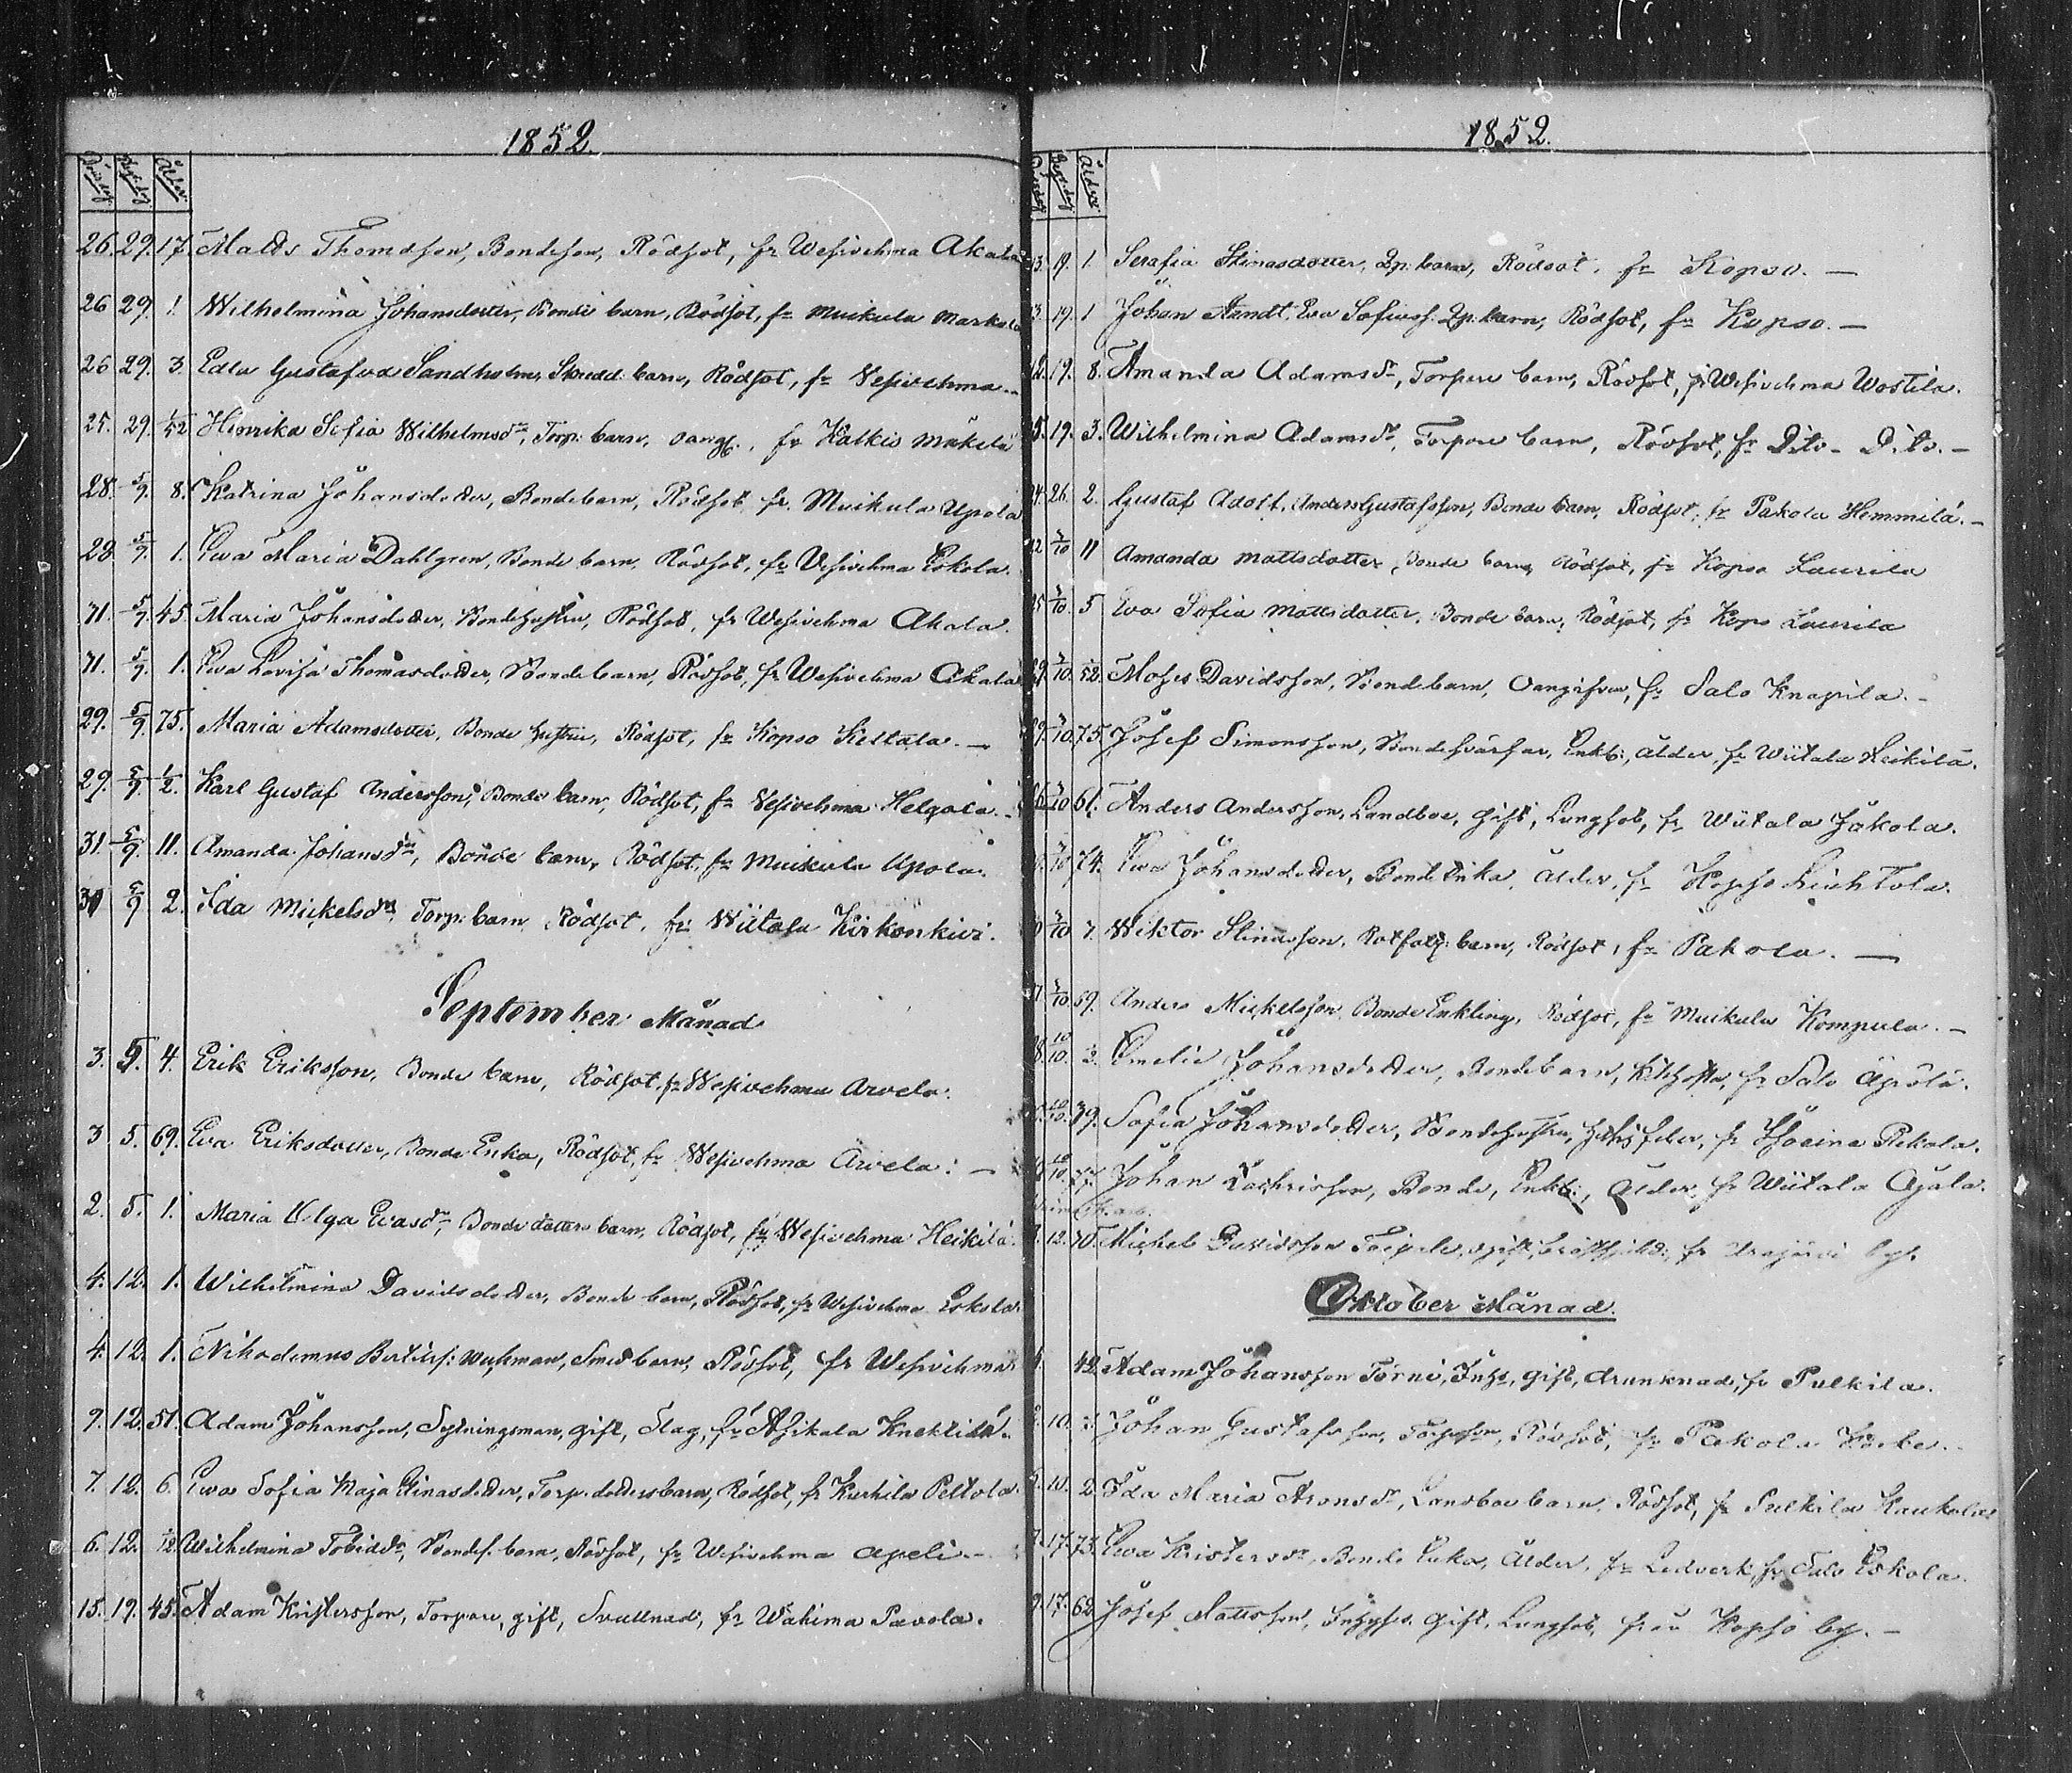 1852.
Dödsdag Begr.dag Ålder
26. 29. 17. Matts Thomasson, Bondeson, Rödsot, fr Wesivehma Akala
26 29. 1. Wilhelmina Johansdotter, Bonde barn, Rödsot, fr Muikula Markola
26 29. 3. Edla Gustafva Sandholm, Skredd. barn, Rödsot, fr Vesivehma.
25. 29. 1/52 Henrika Sofia Wilhelmsdr, Torp. barn, oangf., fr Kalkis Mäkelä
28. 5/9. 8. Katrina Johansdotter, Bondebarn, Rödsot, fr. Muikula Upola
28. 5/9. 1. Ewa Maria Dahlgren, Bonde barn, Rödsot, fr Vesivehma Eskola.
31. 5/9. 45. Maria Johansdotter, Bondehustru, Rödsot, fr Wesivehma Akala.
31. 5/9. 1. Ewa Lovisa Thomasdotter, Bondebarn, Rödsot, fr Wesivehma Akala
29. 5/9. 75. Maria Adamsdotter, Bonde hustru, Rödsot, fr Kopso Keltala. —
29. 5/9. 1/2. Karl Gustaf Andersson, Bonde barn, Rödsot, fr Vesivehma Helgola. -
31. 5/9. 11. Amanda Johansdr, Bonde barn, Rödsot, fr Muikula Upola.
30 5/9 2. Ida Mickelsdr, Torp. barn Rödsot, fr Wiitala Kirkonkivi.
September Månad
3. 5. 4. Erik Eriksson, Bonde barn, Rödsot, fr Wesivehma Arvela.
3 5. 69. Eva Eriksdotter, Bonde Enka, Rödsot, fr Wesivehma Arvela. —
2. 5. 1. Maria Olga Evasdr, Bonde dotters barn, Rödsot, fr Wesivehma Heikilä.
4. 12. 1. Wilhelmina Davidsdotter, Bonde barn, Rödsot, fr Wesivehma Eskola.
4. 12. 1. Nikodemus Bertilss: Wukman, Smedbarn, Rödsot, fr Wesivehma
9. 12. 51. Adam Johansson, Sytningsman, gift, Slag, fr Asikala Knektilä.
7. 12. 6. Ewa Sofia Maja Stinasdotter, Torp. dottersbarn, Rödsot, fr Kurhila Peltola.
6. 12. 1/12 Wilhelmina Tobiasdr, Bondes. barn, Rödsot, fr Wesivehma Apeli. -
15. 19. 45. Adam Kristersson, Torpare, gift, Svullnad, fr Wähima Pavola.
1852.
Dödsdag Begr.dag Ålder
13. 19. 1 Serafia Stinasdotter, Qp. barn, Rödsot, fr Kopso. —
13. 19. 1 Johan Arndt, Eva Sofiass. Qp. barn, Rödsot, fr Kopso. —
12. 19. 8. Amanda Adamsdr, Torpare barn, Rödsot, fr Wesivehma Wostila.
15. 19. 3. Wilhelmina Adamsdr, Torpare barn, Rödsot, fr Dito - Dito. -
24. 26. 2. Gustaf Adolf, Anders Gustafsson, Bonde barn, Rödsot, fr Pakola Hemmilä. -
22 3/10 11 Amanda Mattsdotter, Bonde barn, Rödsot, fr Kopso Laurila
25 3/10. 5 Eva Sofia Mattsdotter, Bonde barn, Rödsot, fr Kopso Laurila
29. 3/10. 1/52. Moses Davidsson, Bondebarn, Oangifven, fr Salo Knapila. -
29. 3/10. 75. Josef Simonsson, Bondesvärfar, Enkl:, ålder, fr Wiitala Heikilä.
26 3/10 61. Anders Andersson, Landboe, gift, Lungsot, fr Wiitala Jakola.
3/10 74. Ewa Johansdotter, Bonde Enka, ålder, fr Kopso Liehtola.
3/10 7. Wiktor Stinasson, Rotfatg. barn, Rödsot, fr Pakola. —
3/10. 59. Anders Mickelsson, Bonde Enkling, Rödsot, fr Muikula Kompula. -
10/10. Emelie Johansdotter, Bondebarn, Kikhosta, fr Salo Äpölä.
10/10. 39. Sofia Johansdotter, Bondehustru, feber, fr Pekola.
10/10. 77. Johan Zachrisson, Bonde, Enkl:, ålder, fr Wiitala Ajala.
12. 70. Michel Davidsson gift, fr Urajärvi by.
Oktober Månad.
42. Adam Johansson Törni, Inhs, gift, drunknad, fr Pulkila.
10. Johan Gustafsson, Torpson, Rödsot, fr Pakola
10. 2. Ida Maria Aronsdr, Landboe barn, Rödsot, fr Pulkila Kaukola
17. 73. Ewa Kristersdr, Bonde Enka, Ålder, fr Ledverk, fr Salo Eskola.
9. 17. 62. Josef Mattsson, Inhyses, gift, Lungsot, från Kopso by. -